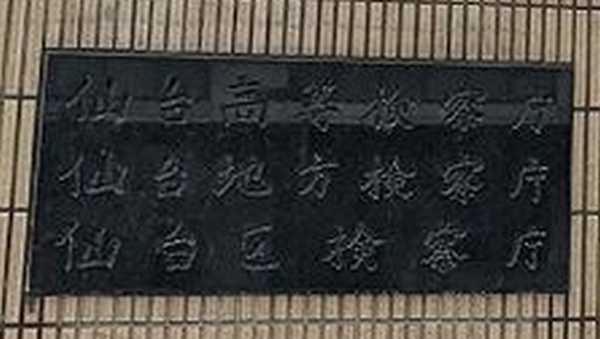 仙台高等検察庁
仙台地方検察庁
仙台区検察庁